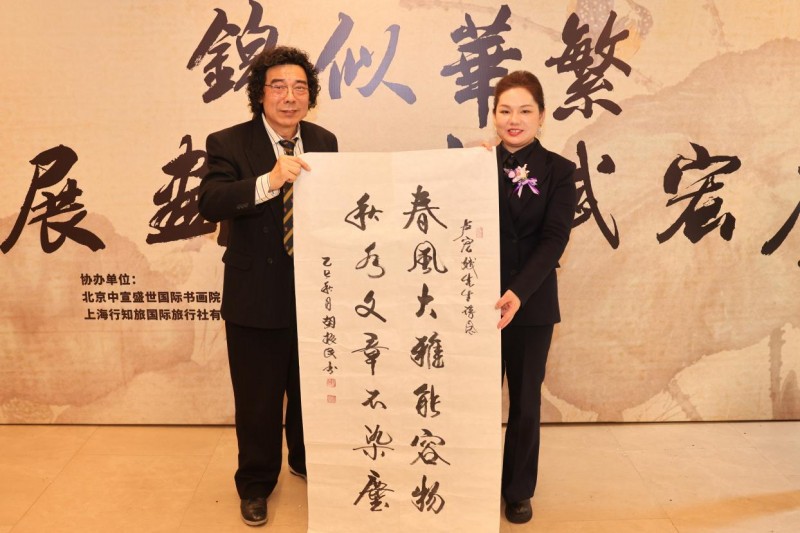 繁華似錦
宏斌 畫展
协办单位：
北京中宣盛世国际书画院
上海行知旅国际旅行社有
卢宏斌先生
春風大雅能容物
秋水文章不染塵
乙巳秋月胡振民书